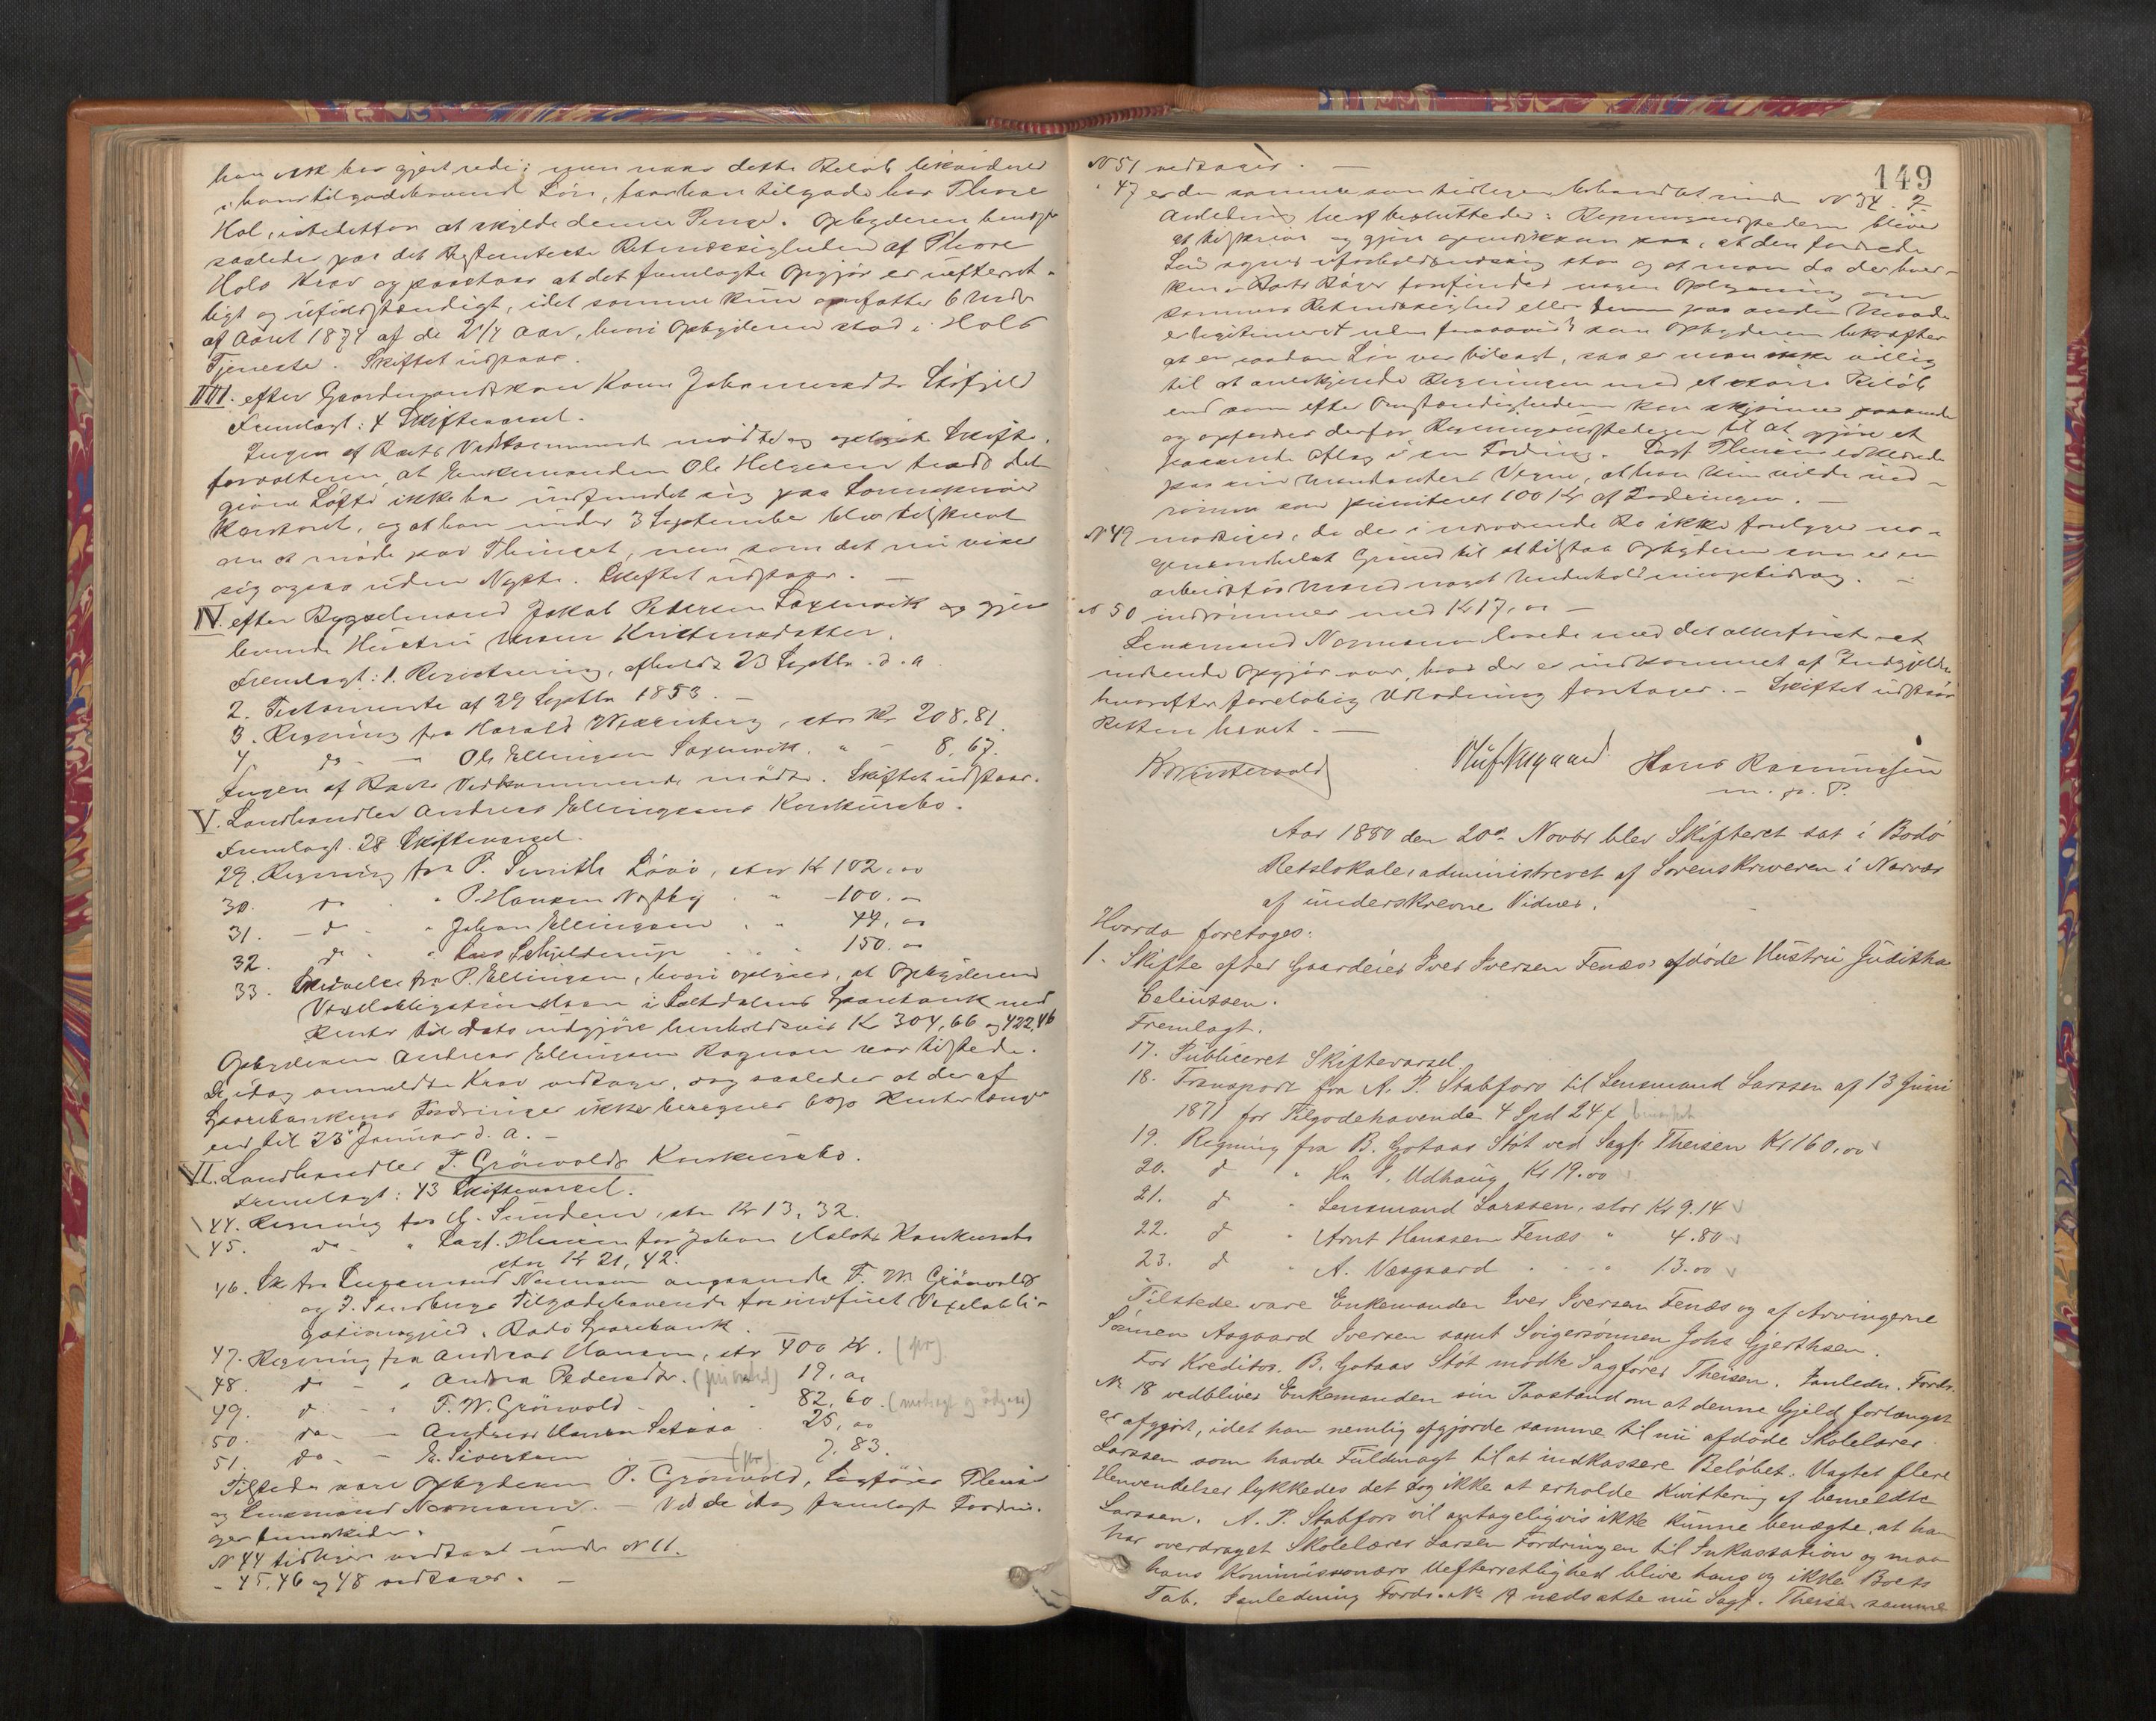 han ikk har gjort rede; men naar dette Beløb likvideres
i hans tilgodehavende Løn, faar han tilgode hos Thore
Hol, istedetfor at skylde denne Penge. Opbyderen benægter
saaledes paa det Bestemteste Retmæssigheden af Thore
Hols Krav og paastaar at det fremlagte Opgjør er uefterret-
ligt og ufuldstændigt, idet samme kun omfatter 6 Mdr
af Aaret 1874 af de 2 1/4 Aar, hvori Opbyderen stod i Hols
Tjeneste. Skiftet udstaar.
III. efter Gaardmandskone Karen Johannesdtr Storfjeld
Fremlagt: 4 Skiftevarsel.
Ingen af Boets Vedkommende mødte og oplyste Skifte-
forvalteren, at Enkemanden Ole Helgesen trods det
givne Løfte ikke har indfundet sig paa Sorenskriver
Kontoret, og at han under 3 September blev tilskrevet
om at møde paa Thinget, men som det nu viser
sig ogsaa uden Nytte. Skiftet udstaar. —
IV. efter Bygselmand Jakob Pedersen Saxenvik og gjen
levende Hustru Maren Kristensdatter.
Fremlagt: 1. Registrering, afholdt 23 Septbr d. a.
2. Testamente af 29 Septbr 1853. —
3. Regning fra Harald Wexenberg, stor Kr 208.81.
4. do — Ole Ellingsen Saxenvik " — 8.67.
Ingen af Boets Vedkommende mødte. Skiftet udstaar.
V. Landhandler Andreas Ellingsens Konkursbo.
Fremlagt. 28 Skiftevarsel.
29. Regning fra P. Smith Løvø, stor Kr 102,00
30. do " P. Hansen Nestby " -100.-
31. — do " Johan Ellingsen " 44,00
32. do " Lars Schjelderup " 150.00
33. Skrivelse fra P. Ellingsen, hvori oplyses, at Opbyderens
Vexelobligationslaan i Saltdalens Sparebank med
Renter til Dato udgjøre henholdsvis Kr 304,66 og 422,46
Opbyderen Andreas Ellingsen Rognan var tilstede.
De idag anmeldte Krav vedtages, dog saaledes at der af
Sparebankens Fordringer ikke beregnes 6% Renter længer
end til 23 Januar d. A. —
VI. Landhandler F. Grönvolds Konkursbo.
Fremlagt: 43 Skiftevarsel.
44. Regning fra M. Sundem, stor Kr 13,32.
45. do " Sagf. Theisen for Johan Maloks Konkursbo
stor Kr 21,42.
46. Sk. fra Lensmand Normann angaaende F. W. Grönvolds
og J. Sandbergs Tilgodehavende for indfriet Vexelobli-
gationsgjeld i Bodø Sparebank.
47. Regning fra Andreas Hansen, stor 400 Kr. (pr)
48. do — " Andrea Pedersdtr. (privated) 19,00
49. do — " F. W. Grönvold — 82,60. (modsagt og udgaar)
50. do — — Andreas Hansen Setsaa 25,00
51. do — — E. Sivertsen — (pr) 7.83.
Tilstede vare Opbyderen P. Grönvold, Sagfører Theisen
og Lensmand Normann. — Ved de idag fremlagte Fordrin-
ger bemærkedes.
N 44 tidligere vedtaat under N 11.
- 45, 46 og 48 vedtages. —
149
N 51 vedtages. —
" 47 er den samme som tidligere behandlet under N 34. I
Anledning heraf besluttedes: Regningsudstederen bliver
at tilskrive og gjøre opmærksom paa, at den fordrede
Løn synes uforholdsmæssig stor og at man da der hver-
ken i Boets Bøger forfindes nogen Oplysning om
sammes Retmæssighed eller denne paa anden Maade
er legitimeret uden forsaavidt som Opbyderen bekræfter
at en saadan Løn var tilsagt, saa er man ikke villig
til at anerkjende Regningen med et større Beløb
end som efter Omstændighederne kan skjønnes passende
og opfordres derfor Regningsudstederen til at gjøre et
passende Afslag i sin Fordring. Sagf. Theisen erklærede
paa sin Mandants Vegne, at han kun vilde ind-
rømme som prioriteret 100 Kr af Fordringen. —
N 49 modsiges, da der i nærværende Bo ikke foreligger no-
gensomhelst Grund til at tilstaa Opbyderen som er en
arbeidsfør Mand noget Underholdningsbidrag. —
N 50 indrømmes med Kr 17,00 —
Lensmand Normann lovede med det allerførste at
indsende Opgjør over, hvad der er indkommet af Indgjelden
hvorefter foreløbig Udlodning foretages. — Skiftet udstaar
Retten hævet. —
K Winterwold Oluf Aagaard Hans Rasmussen
m. p. P.
Aar 1880 den 20de Novbr blev Skifteret sat i Bodö
Retslokale, administreret af Sorenskriveren i Nærvær
af underskrevne Vidner.
Hvorda foretoges:
1. Skifte efter Gaardeier Iver Iversen Fenæs's afdöde Hustru Juditha
Celiussen.
Fremlagt.
17. Publiceret Skiftevarsel
18. Transport fra A. P. Stabfors til Lensmand Larssen af 13 Juni
1871 for Tilgodehavende 4 Spd 24 f. benægtet
19. Regning fra B. Gotaas Stöt ved Sagf. Theisen Kr 160,00 v
20. d " Ha. P. Udhaug Kr 19.00 v
21. d " Lensmand Larssen, stor Kr 9.14 v
22. d " Arnt Hanssen Fenæs " 4.80 v
23. d " A. Vasgaard " 13.00 v
Tilstede vare Enkemanden Iver Iversen Fenæs og af Arvingerne
Sönnen Aagaard Iversen samt Svigersönnen Johs Gjerthsen.
For Kreditor B. Gotaas Stöt mödte Sagförer Theisen. Ianledn. Fordr.
No 18 vedbliver Enkemanden sin Paastand om at denne Gjeld forlængst
er afgjort, idet han nemlig afgjorde samme til nu afdöde Skolelærer
Larssen som havde Fuldmagt til at indkassere Belöbet. Uagtet flere
Henvendelser lykkedes det dog ikke at erholde Kvittering af bemeldte
Larssen. A. P. Stabfors vil antageligvis ikke kunne benægte, at han
har overdraget Skolelærer Larsen Fordringen til Inkassation og maa
hans Kommissionærs Uefterretlighed blive hans og ikke Boets
Tab. Ianledning Fordr. No 19 nedsatte nu Sagf. Theisen samme